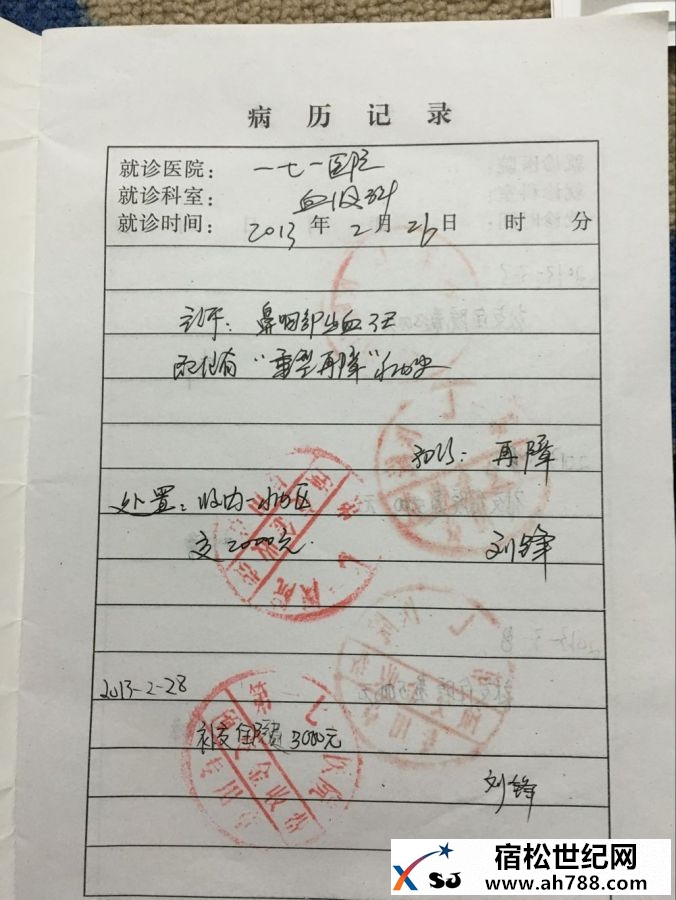 病历记录
就诊医院： 一七一医院
就诊科室： 血液科
就诊时间： 2013 年 2 月 26 日 时 分
主诉：鼻咽部出血3天
既往有“重型再障”病史
初诊：再障
处置：收内一病区
交2000元. 刘锋
2013-2-28
补交住院费3000元
刘锋
宿松世纪网
XSJ www.ah788.com